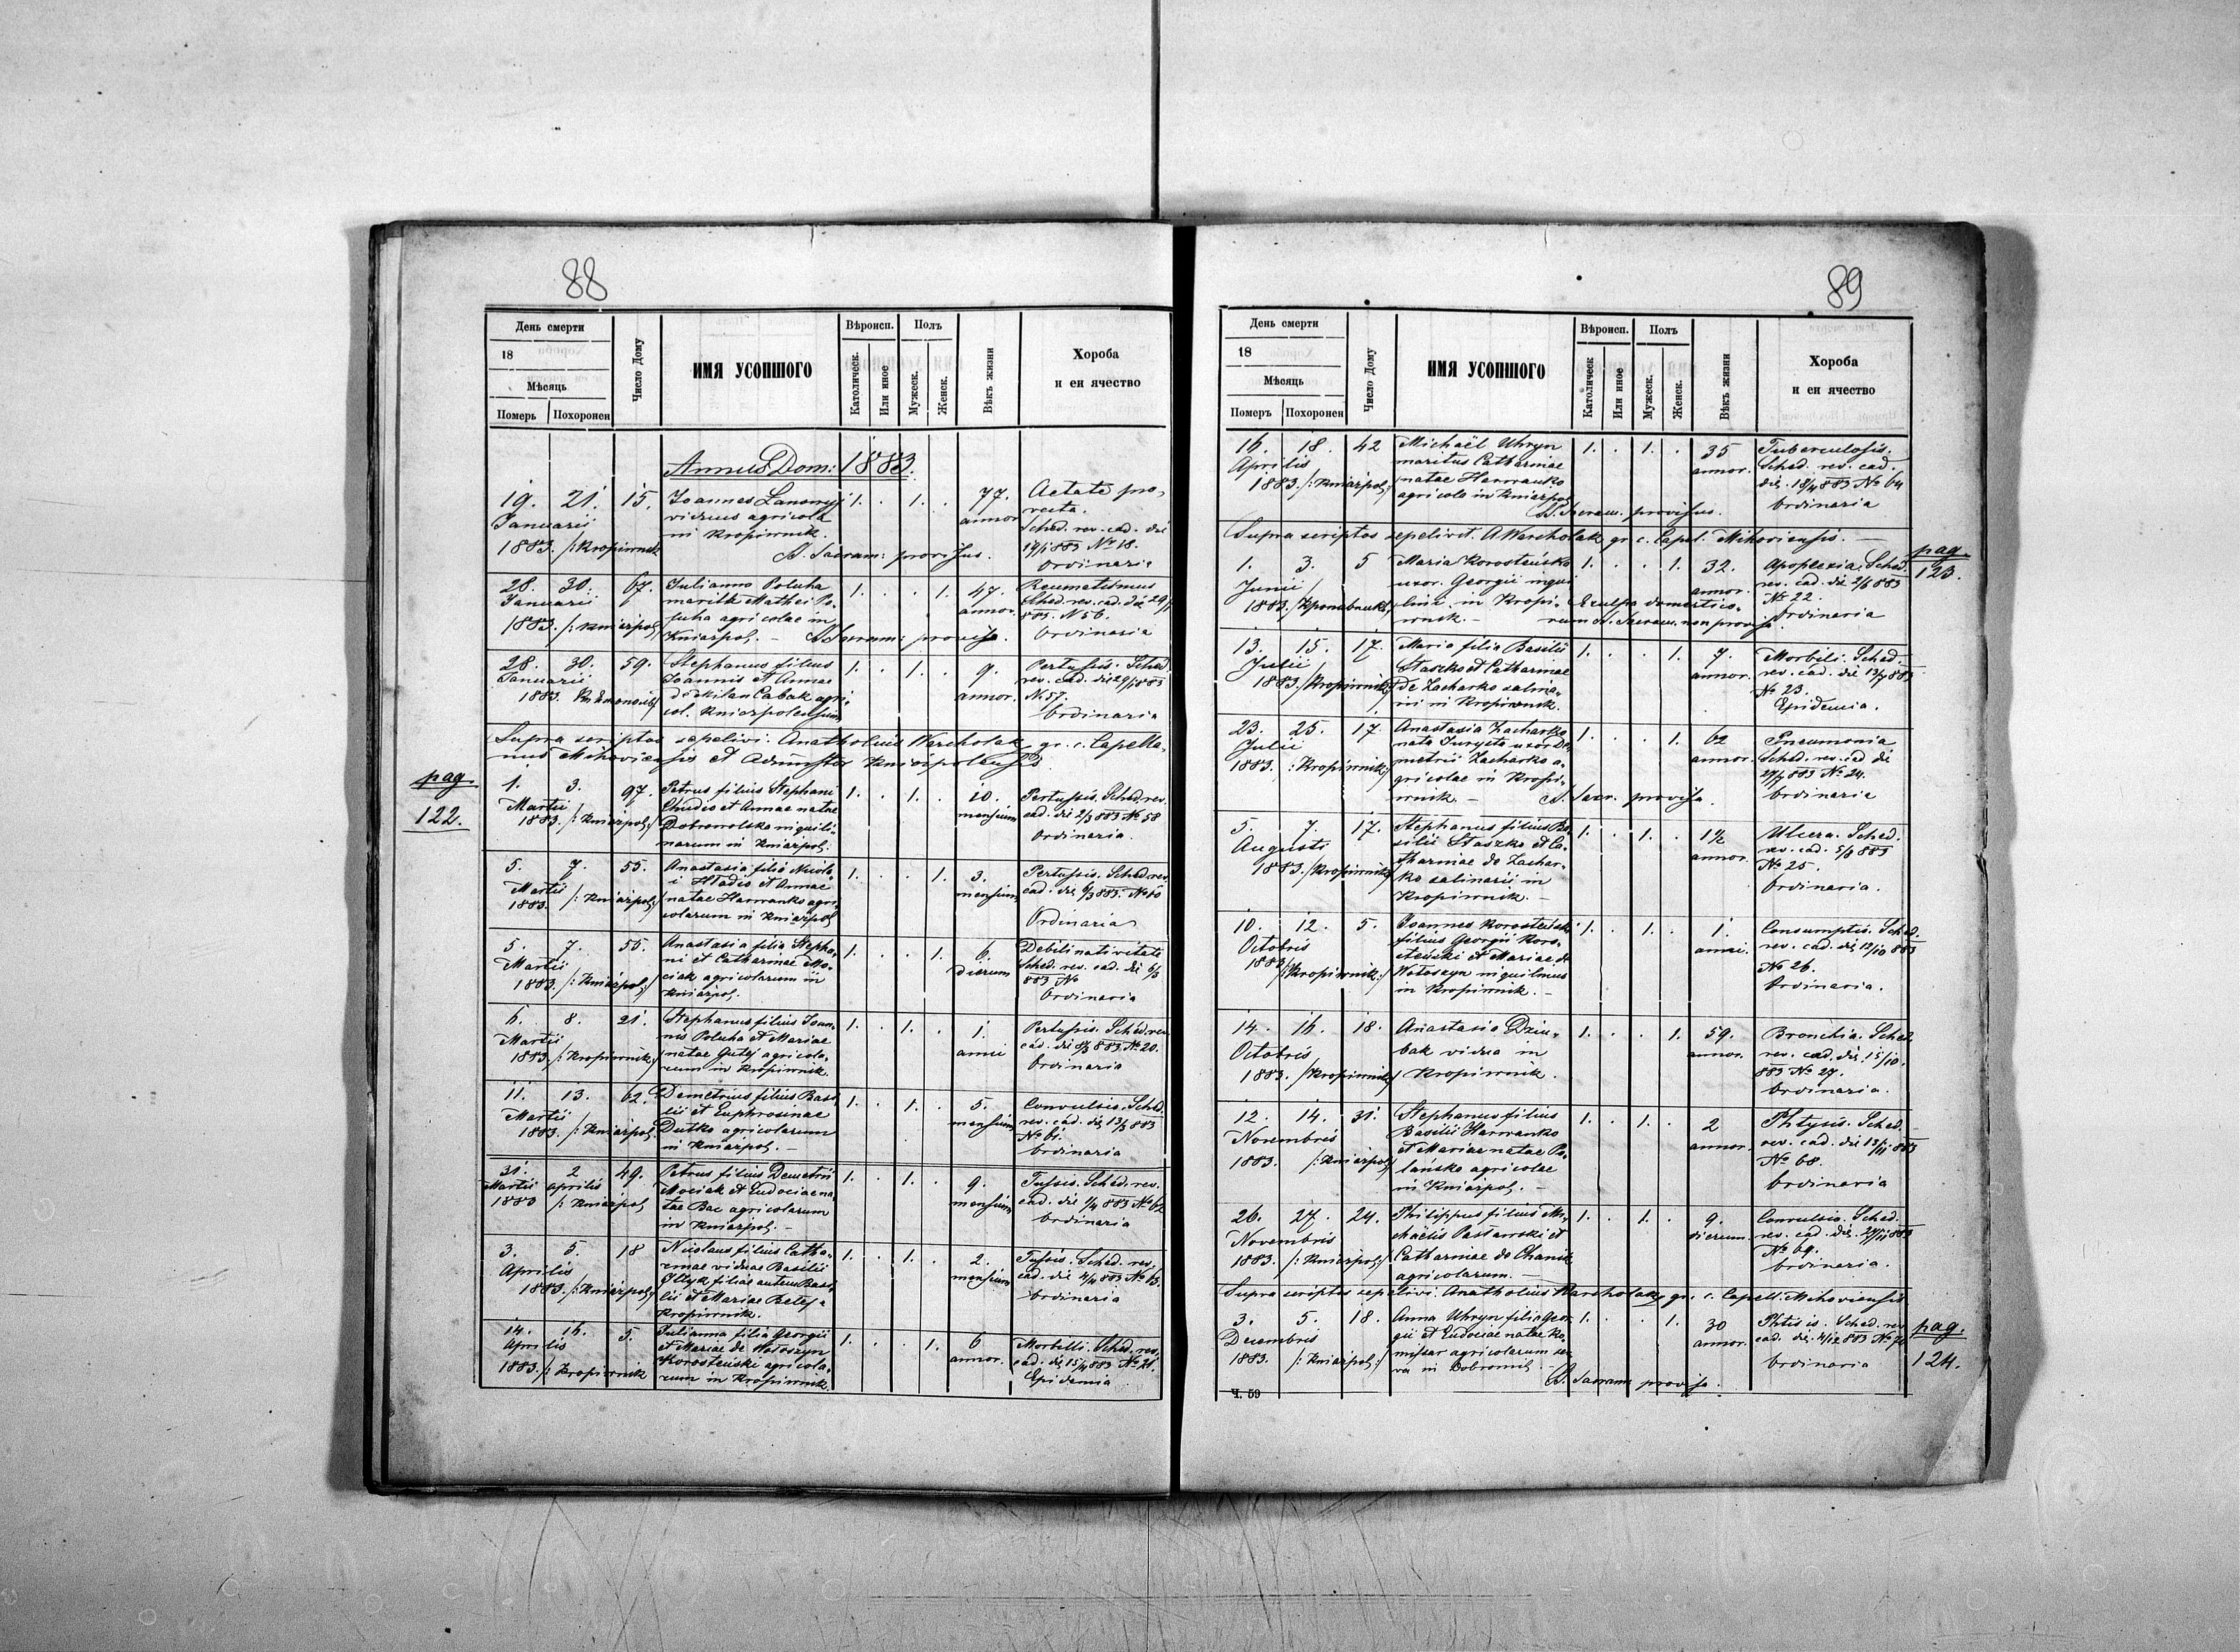 88
День смерти
18
Мѣсяць
Померъ
Похоронен
Число Дому
ИМЯ УСОПШОГО
Вѣроисп.
Католическ.
Или иное
Полъ
Мужеск.
Женск.
Вѣкъ жизни
Хороба
и еи ячество
Annus Dom: 1883.
19. 21. 15. Joannes 1. . 1. . 77. Aetate pro-
Januarii viduus agricola annor. vecta.
1883. /: Kropiwnik in Kropiwnik. Sched. rev. cad. die
S. Sacram: provisus. 19/1 883 № 18.
Ordinaria
28. 30. 67. Julianna Poluha 1. . . 1. 47. Reumatismus
Januarii marita Mathei Po- annor. Sched. rev. cad. die 29/1
1883. /: Kniazpol luha agricolae in 883. № 56.
Kniazpol. - S. Sacram: provisa. Ordinaria
28. 30. 59. Stephanus filius 1. . 1. . 9. Pertussis. Sched.
Januarii Joannis et Annae annor. rev. cad. die 29/1 883
1883. Cabak agri- № 57.
col. Kniazpolensium Ordinaria
Supra scriptos sepelivi. Anatholius Warcholak gr. c. Capella-
nus Mihoviensis et Adminster Kniazpolensis
pag.
122.
1. 3. 97. Petrus filius Stephani 1. . 1. . 10. Pertussis. Sched. rev.
Martii et Annae natae mensium cad. die 2/3 883 № 58
1883. /: Kniazpol:/ Dobrowolska inquili- Ordinaria.
norum in Kniazpol.
5. 7. 55. Anastasia filia Nicola- 1. . . 1. 3. Pertussis. Sched. rev.
Martii i Hladio et Annae mensium cad. die
1883. /: Kniazpol:/ natae Harwanko agri- Ordinaria
colarum in Kniazpol
5. 7. 55. Anastasia filia Stepha- 1. . . 1. 6. Debili nativitate
Martii ni et Catharinae Mo- dierum Sched. rev. cad. die 6/3
1883. /: Kniazpol:/ ciak agricolarum in 883 №
Kniazpol. Ordinaria
6. 8. 21. Stephanus filius Joan- 1. . 1. . 1. Pertussis. Sched. rev.
Martii nis Poluha et Mariae anni cad. die 8/3 883 № 20.
1883. /: Kropiwnik:/ natae Gutej agricola- Ordinaria
rum in Kropiwnik.
11. 13. 62. Demetrius filius Basi- 1. . 1. . 5. Convulsio. Sched.
Martii lii et Euphrosinae mensium rev. cad. die 13/3 883
1883. /: Kniazpol. Dutko agricolarum № 61.
in Kniazpol. - Ordinaria
31. 2 49. Petrus filius Demetrii 1. . 1. . 9. Tussis. Sched. rev.
Martii aprilis Mociak et Eudociae na- mensium cad. die 1/4 883 № 62
1883 /: Kniazpol tae Bac agricolarum Ordinaria
in Kniazpol. -
3. 5. 18 Nicolaus filius Catha- 1. . 1. . 2. Tussis. Sched. rev.
Aprilis rinae viduae Basilii mensium cad. die 4/4 883 № 63.
1883. /: Kniazpol:/ filiae autem Basi- Ordinaria
lii et Mariae
Kropiwnik.
14. 16. 5. Julianna filia Georgii 1. . . 1. 6 Morbilli. Sched. rev.
Aprilis et Mariae de Wołoszyn annor. cad. die 15/4 883 № 21.
1883. /: Kropiwnik Korosteński agricola- Epidemia
rum in Kropiwnik
89
День смерти
18
Мѣсяць
Померъ
Похоронен
Число Дому
ИМЯ УСОПШОГО
Вѣроисп.
Католическ
Или иное
Полъ
Мужеск.
Женск.
Вѣкъ жизни
Хороба
и еи ячество
16. 18. 42 Michaël Uhryn 1. . 1. . 35 Tuberculosis.
Aprilis maritus Catharinae annor. Sched. rev. cad.
1883. /: Kniazpol:/ natae Harwanko die 18/4 883 № 64
agricola in Kniazpol Ordinaria
S. Sacram. provisus.
Supra scriptos sepelivit. A Warcholak gr. c. Capel. Mihoviensis. -
pag.
123.
1. 3. 5 Maria Korosteńska 1. . . 1. 32. Apoplexia. Sched.
Junii uxor. Georgii inqui annor. rev. cad. die 2/6 883
1883. lini in Kropi- Ex culpa domestico- № 22.
wnik. - rum S. Sacram. non provisa Ordinaria
13. 15. 17. Maria filia Basilii 1. . . 1. 7. Morbili. Sched.
Julii Staszko et Catharinae annor. rev. cad. die 13/7 883
1883. /Kropiwnik:/ de Zacharko salina- № 23.
rii in Kropiwnik. Epidemia.
23. 25. 17. Anastasia Zacharko 1. . . 1. 62 Pneumonia
Julii nata Jurysta uxor De- annor. Sched. rev. cad die
1883. /: Kropiwnik:/ metrii Zacharko a- 24/7 883 № 24.
gricolae in Kropi- Ordinaria
wnik. - S. Sacr. provisa.
5. 7. 17. Stephanus filius Ba- 1. . 1. . 1½ Ulcera. Sched.
Augusti silii Staszko et Ca- annor. rev. cad. 5/8 883
1883. /Kropiwnik/ tharinae de Zachar- № 25.
ko salinarii in Ordinaria.
Kropiwnik. -
10. 12. 5. Joannes Korosteński 1. . 1. . 1. Consumptis. Sched.
Octobris filius Georgii Koro- anni. rev. cad. die 12/10 883
1883 /:Kropiwnik:/ steński et Mariae de № 26.
Wołoszyn inquilinus Ordinaria.
in Kropiwnik. -
14. 16. 18. Anastasia Dziu- 1. . . 1. 59. Bronchia. Sched
Octobris bak vidua in annor. rev. cad. die 15/10.
1883. /Kropiwnik/ Kropiwnik. 883 № 27.
Ordinaria.
12. 14. 31. Stephanus filius 1. . 1. . 2 Phtysis. Sched.
Novembris Basilii Harwanko annor. rev. cad. die 13/11 883
1883. /:Kniazpol/ et Mariae natae Po- № 68.
lańsko agricolae Ordinaria
in Kniazpol. -
26. 27. 24. Philippus filius Mi- 1. . 1. . 9. Convulsio. Sched.
Novembris chaëlis Pastawski et dierum. rev. cad. die. 27/11 883
1883. /: Kniazpol:/ Catharinae de Chanik № 69.
agricolarum. - Ordinaria.
Supra scriptos sepelivi. Anatholius Warcholak gr. c. Capell. Mihoviensis
3. 5. 18. Anna Uhryn filia Geor- 1. . . 1. 30 Phtisis. Sched. rev.
Decembris gii et Eudociae natae Ko- annor. cad. die. 4/12 883 № 70
1883. /: Kniazpol:/ agricolarum ser- Ordinaria
va in Dobromil. -
S. Sacram: provisa.
pag.
124.
Ч. 59